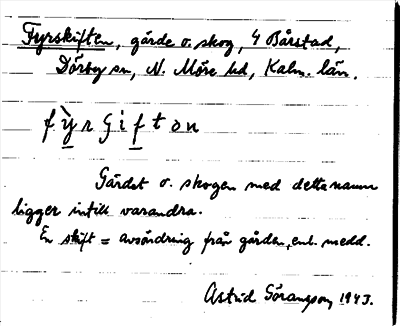 Fyrskiften, gärde o. skog, 4 Bårstad,
Dörby sn, N. Möre hd, Kalm. län.
fỳrʂiftɔn
Gärdet o. skogen med detta namn
ligger intill varandra.
En skift = avsöndring från gården, enl. medd.
Astrid Göransson 1943.